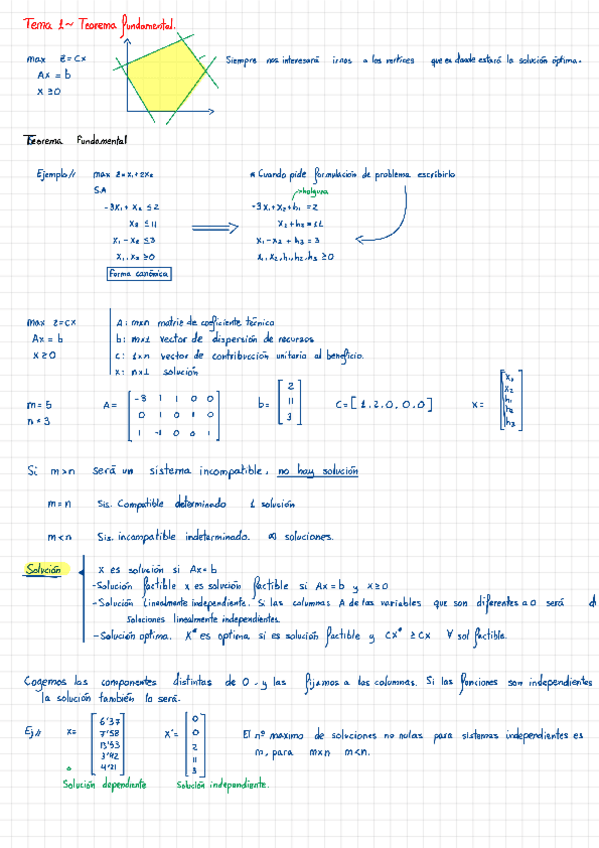 Tema 1~ Teorema fundamental.
max z=cx
Ax = b
x ≥0
Siempre nos interesará irnos a los vertices que es donde estará la solución óptima.
Teorema Fundamental
Ejemplo//
max z=x₁+2x₂
S.A
-3x₁+ x₂ ≤ 2
x₂ ≤ 11
x₁ - x₂ ≤ 3
x₁, x₂ ≥0
Forma canónica
* Cuando pide formulación de problema escribirlo
holgura
-3x₁+x₂+h₁ = 2
x₂+h₂ = 11
x₁-x₂ + h₃ = 3
x₁,x₂,h₁,h₂,h₃ ≥0
max z=cx
Ax = b
x ≥0
A: mxn matriz de coeficiente técnico
b: mx1 vector de dispersión de recursos
c: 1xn vector de contribucción unitaria al beneficio.
x: nx1 solución
m= 5
n = 3
A= [ -3 1 1 0 0
0 1 0 1 0
1 -1 0 0 1 ]
b= [ 2
11
3 ]
C=[ 1, 2, 0, 0, 0 ]
x= [ x₁
x₂
h₁
h₂
h₃ ]
Si m>n será un sistema incompatible, no hay solución
m=n Sis. Compatible determinado 1 solución
m<n Sis. incompatible indeterminado. ∞ soluciones.
Solución
x es solución si Ax=b
-Solución factible x es solución factible si Ax=b y x≥0
-Solución linealmente independiente. Si las columnas A de las variables que son diferentes a 0 será d
soluciones linealmente independientes.
-Solución optima. X* es optima si es solución factible y CX* ≥ CX ∀ sol factible.
Cogemos las componentes distintas de 0, y las fijamos a las columnas. Si las funciones son independientes
la solución también lo será.
Ej//
x= [ 6'37
7'58
13'53
3'42
4'21 ]
Solución dependiente
x'= [ 0
0
2
11
3 ]
Solución independiente.
El nº maximo de soluciones no nulas para sistemas independientes es
m, para mxn m<n.